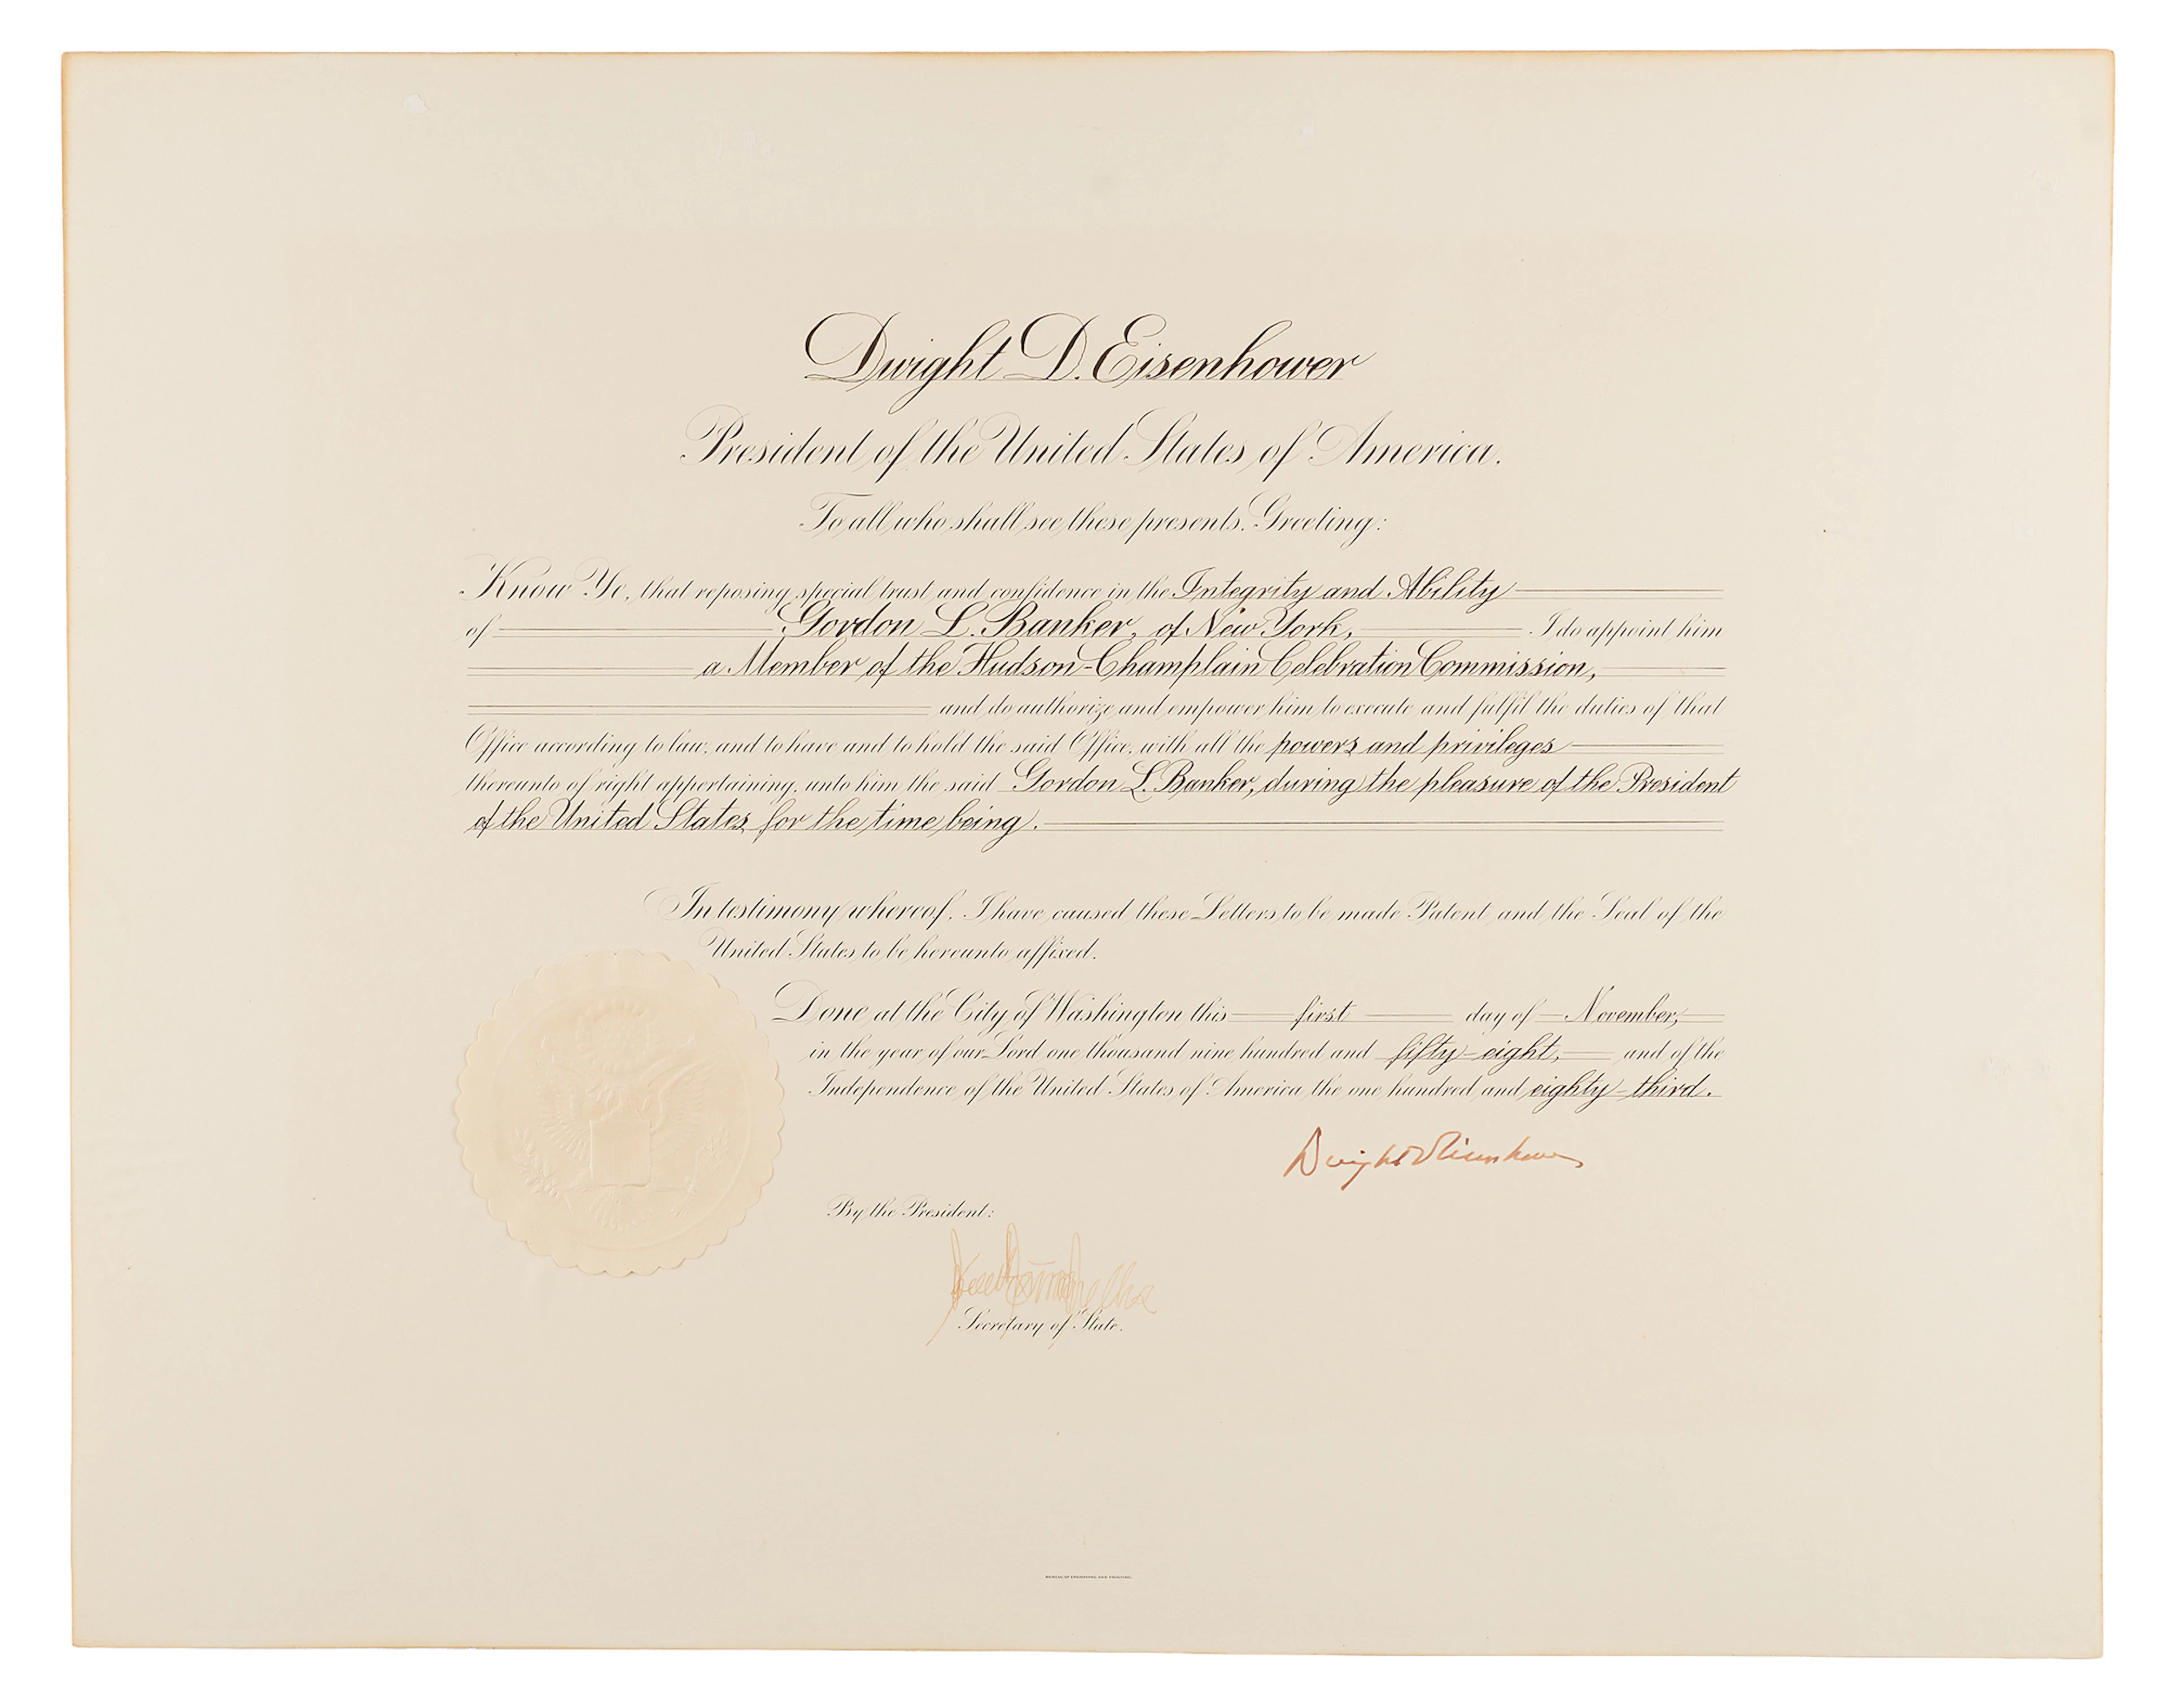 Dwight D. Eisenhower
President of the United States of America.
To all who shall see these presents, Greeting:
Know Ye, that reposing special trust and confidence in the Integrity and Ability
of Gordon L. Banker, of New York, I do appoint him
a Member of the Hudson-Champlain Celebration Commission,
and do authorize and empower him to execute and fulfil the duties of that
Office according to law, and to have and to hold the said Office, with all the powers and privileges
thereunto of right appertaining, unto him the said Gordon L. Banker, during the pleasure of the President
of the United States for the time being.
In testimony whereof, I have caused these Letters to be made Patent and the Seal of the
United States to be hereunto affixed.
Done at the City of Washington this first day of November,
in the year of our Lord one thousand nine hundred and fifty-eight, and of the
Independence of the United States of America the one hundred and eighty-third.
Dwight D Eisenhower
By the President:
Secretary of State.
BUREAU OF ENGRAVING AND PRINTING.